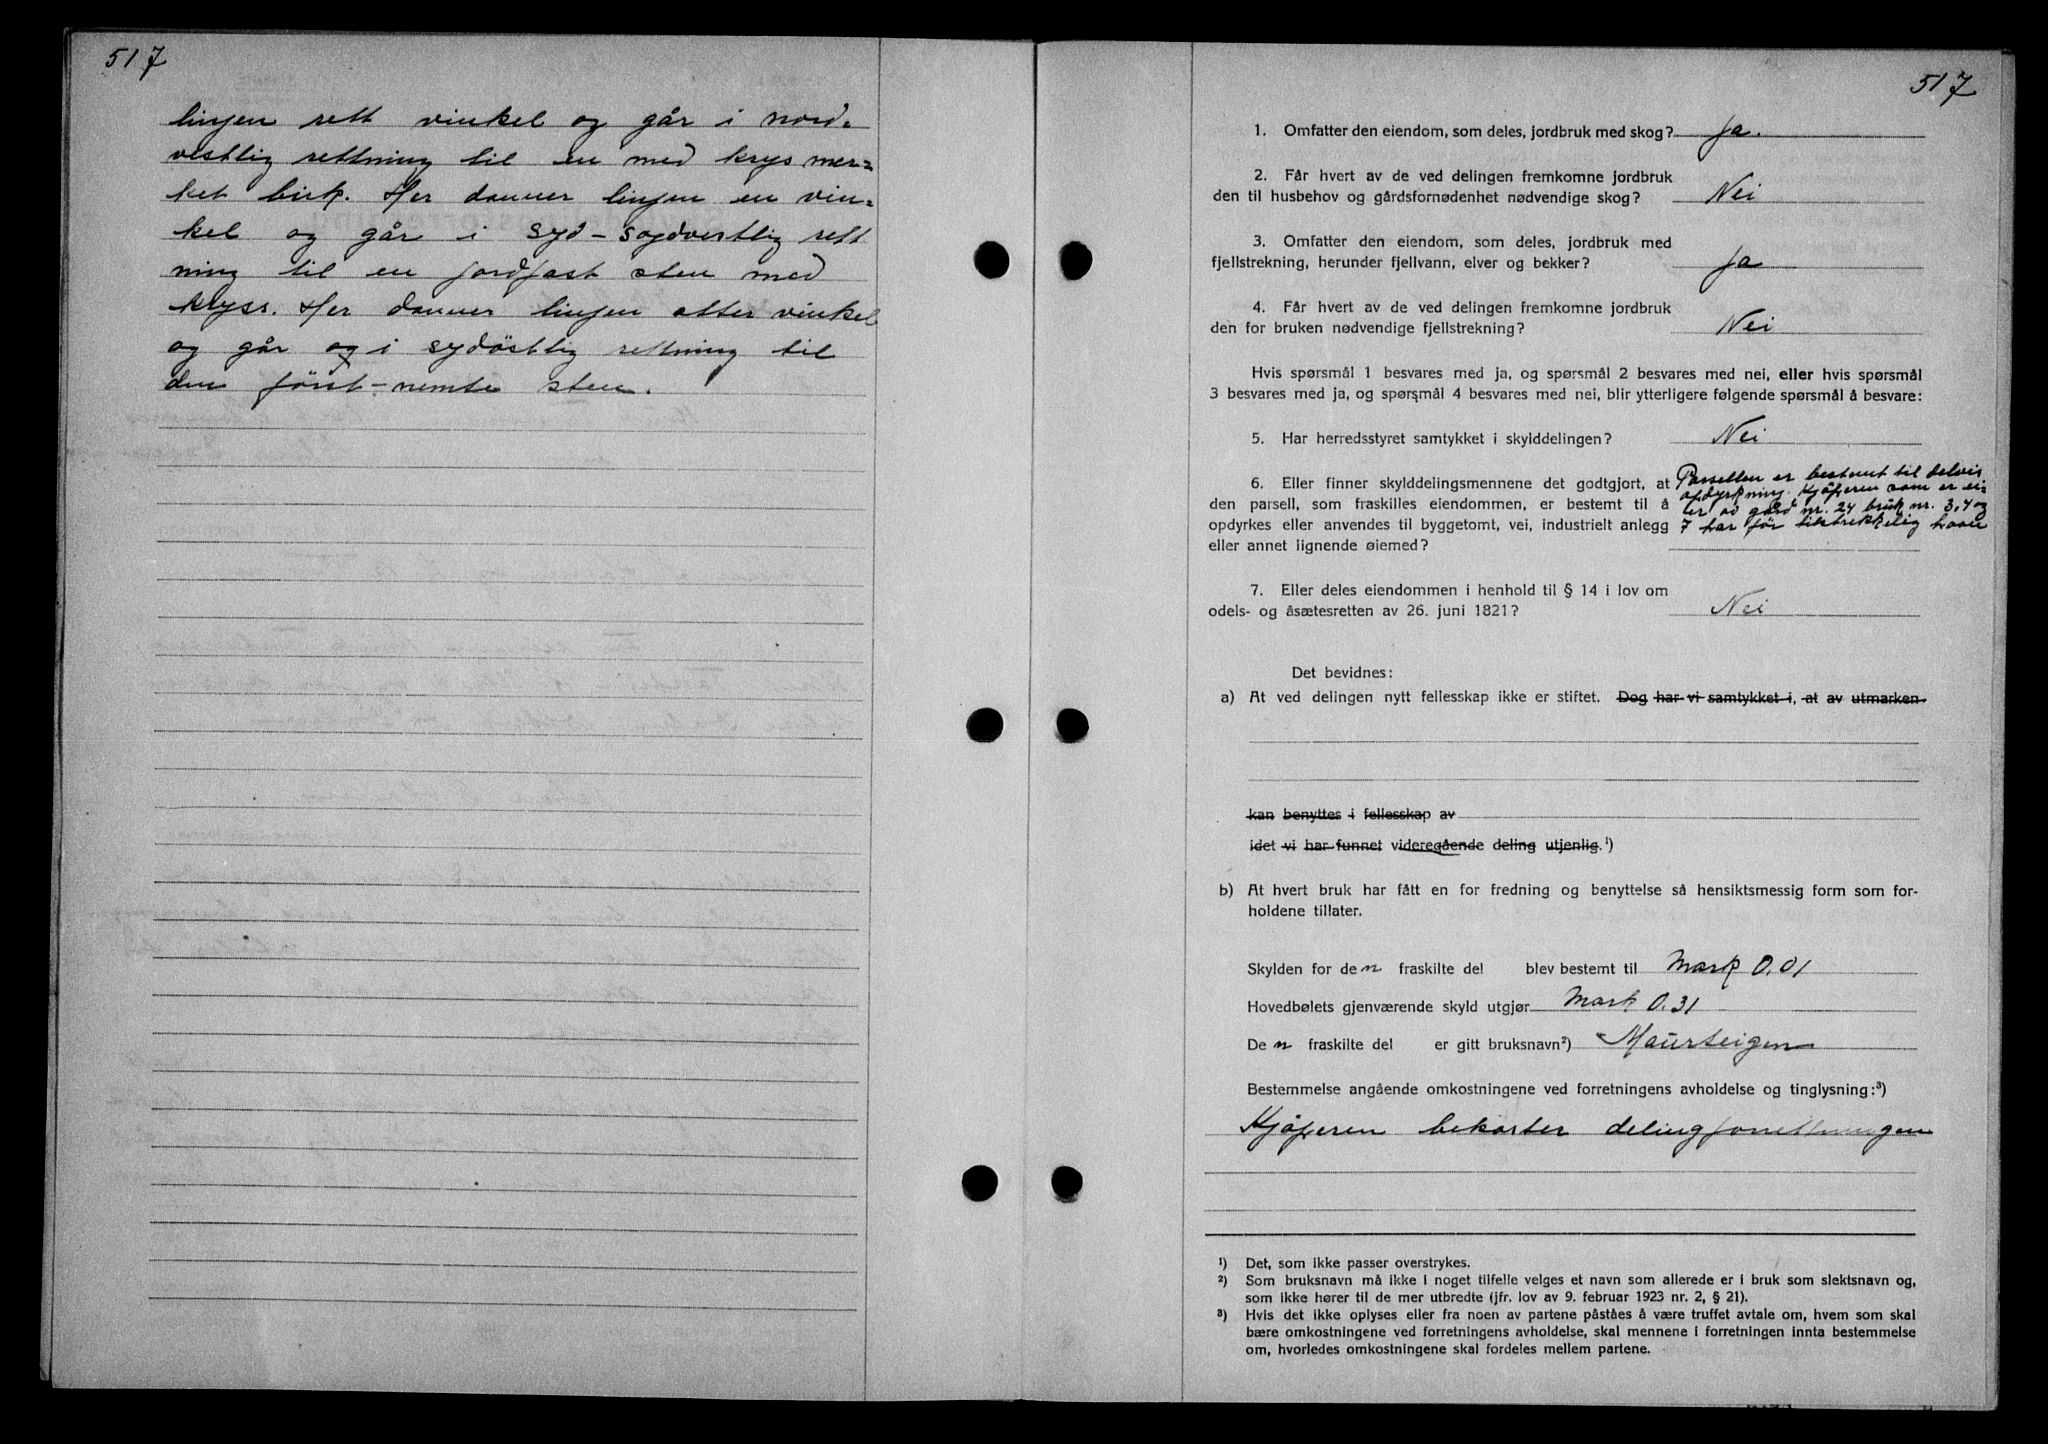 517
linjen rett vinkel og går i nord-
vestlig rettning til en med krys mer-
ket birk. Her danner linjen en vin-
kel og går i syd-sydvestlig rett
ning til en jordfast sten med
kryss. Her danner linjen atter vinkel
og går og i sydöstlig rettning til
den först-nemte sten.
517
1. Omfatter den eiendom, som deles, jordbruk med skog? Ja.
2. Får hvert av de ved delingen fremkomne jordbruk
den til husbehov og gårdsfornødenhet nødvendige skog? Nei
3. Omfatter den eiendom, som deles, jordbruk med
fjellstrekning, herunder fjellvann, elver og bekker? Ja
4. Får hvert av de ved delingen fremkomne jordbruk
den for bruken nødvendige fjellstrekning? Nei
Hvis spørsmål 1 besvares med ja, og spørsmål 2 besvares med nei, eller hvis spørsmål
3 besvares med ja, og spørsmål 4 besvares med nei, blir ytterligere følgende spørsmål å besvare:
5. Har herredsstyret samtykket i skylddelingen? Nei
6. Eller finner skylddelingsmennene det godtgjort, at
den parsell, som fraskilles eiendommen, er bestemt til å
opdyrkes eller anvendes til byggetomt, vei, industrielt anlegg
eller annet lignende øiemed?
Parsellen er bestemt til delvis
opdyrkning. Kjöperen som er ei-
er av gård nr. 24 bruk nr. 3, 4 og
7 har för tilstrekkelig havn
7. Eller deles eiendommen i henhold til § 14 i lov om
odels- og åsætesretten av 26. juni 1821? Nei
Det bevidnes:
a) At ved delingen nytt fellesskap ikke er stiftet. Dog har vi samtykket i, at av utmarken
kan benyttes i fellesskap av
idet vi har funnet videregående deling utjenlig.¹)
b) At hvert bruk har fått en for fredning og benyttelse så hensiktsmessig form som for-
holdene tillater.
Skylden for den fraskilte del blev bestemt til Mark 0.01
Hovedbølets gjenværende skyld utgjør Mark 0.31
Den fraskilte del er gitt bruksnavn²) Maurteigen
Bestemmelse angående omkostningene ved forretningens avholdelse og tinglysning:³)
Kjöperen bekoster delingforrettningen
¹) Det, som ikke passer overstrykes.
²) Som bruksnavn må ikke i noget tilfelle velges et navn som allerede er i bruk som slektsnavn og,
som ikke hører til de mer utbredte (jfr. lov av 9. februar 1923 nr. 2, § 21).
³) Hvis det ikke oplyses eller fra noen av partene påståes å være truffet avtale om, hvem som skal
bære omkostningene ved forretningens avholdelse, skal mennene i forretningen innta bestemmelse
om, hvorledes omkostningene skal fordeles mellem partene.